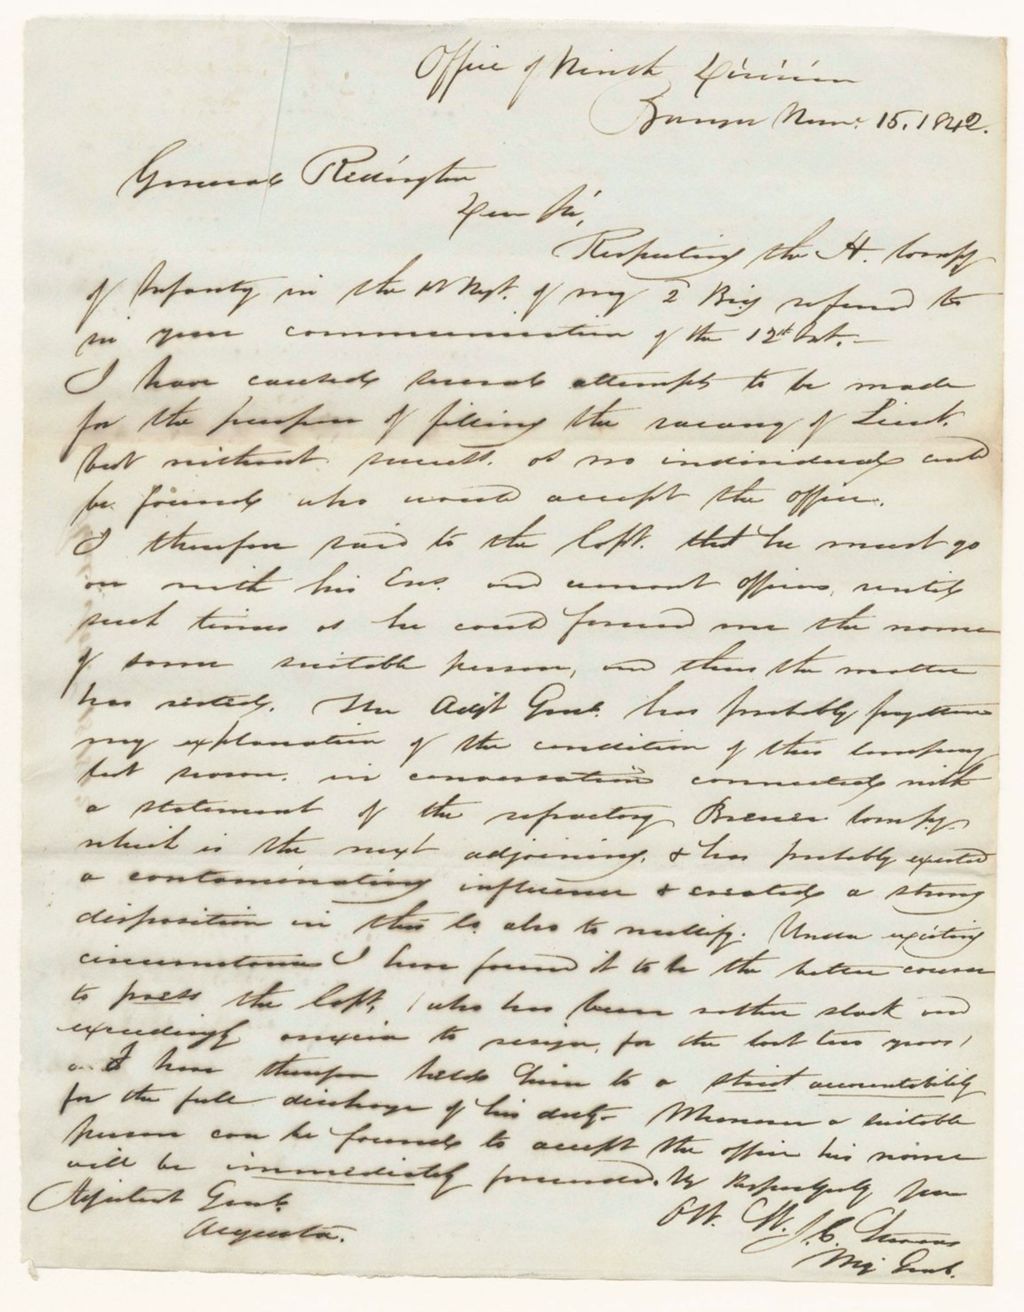 Office of Ninth Division
Bangor Nov. 15, 1842.
General Redington
Dear Sir,
Respecting the A. Compy
of Infantry in the Regt. of my 2 Brig refered to
in your communication of the 12th Inst.
I have caused several attempts to be made
for the purpose of filling the vacancy of Lieut.
but without success. as no individual could
be found who would accept the office.
I therefore said to the Capt. that he must go
on with his Ens. and warrant officers, until
such times as he could forward me the name
of some suitable person, and thus the matter
has rested. The Adjt Genl. has probably forgotten
my explanation of the condition of this Company
last season. in conversation connected with
a statement of the refractory Brewer Compy.
which is the next adjoining. & has probably exerted
a contaminating influence & created a strong
disposition in this Co. also to nullify. Under existing
circumstances I have found it to be the better course
to press the Capt. (who has been rather slack and
exceedingly anxious to resign, for the last two years)
and I have therefore held him to a strict accountability
for the full discharge of his duty. Whenever a suitable
person can be found to accept the office his name
will be immediately forwarded. Respectfully Your
Adjutant Genl. Ob. St.
Augusta. J. C.
Maj Genl.